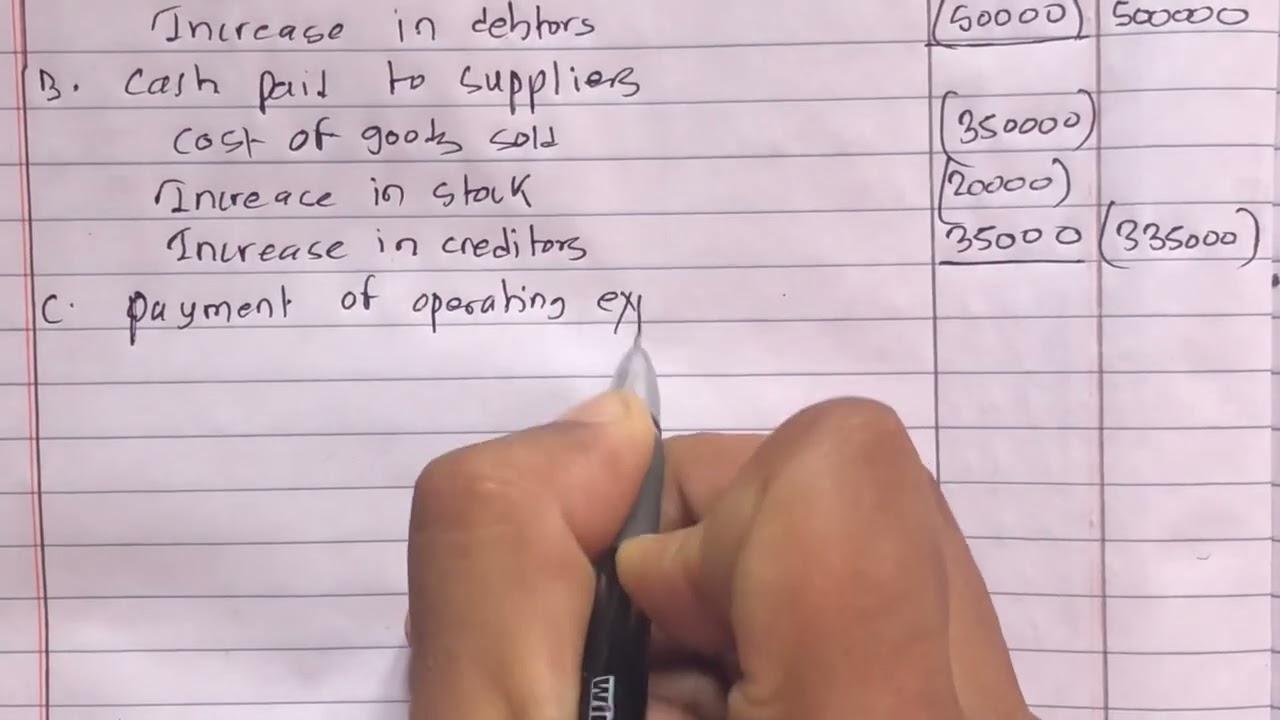 Increase in debtors (50000) 500000
B. Cash paid to suppliers
Cost of goods sold (350000)
Increace in stock (20000)
Increase in creditors 35000 (335000)
C. payment of operating exp